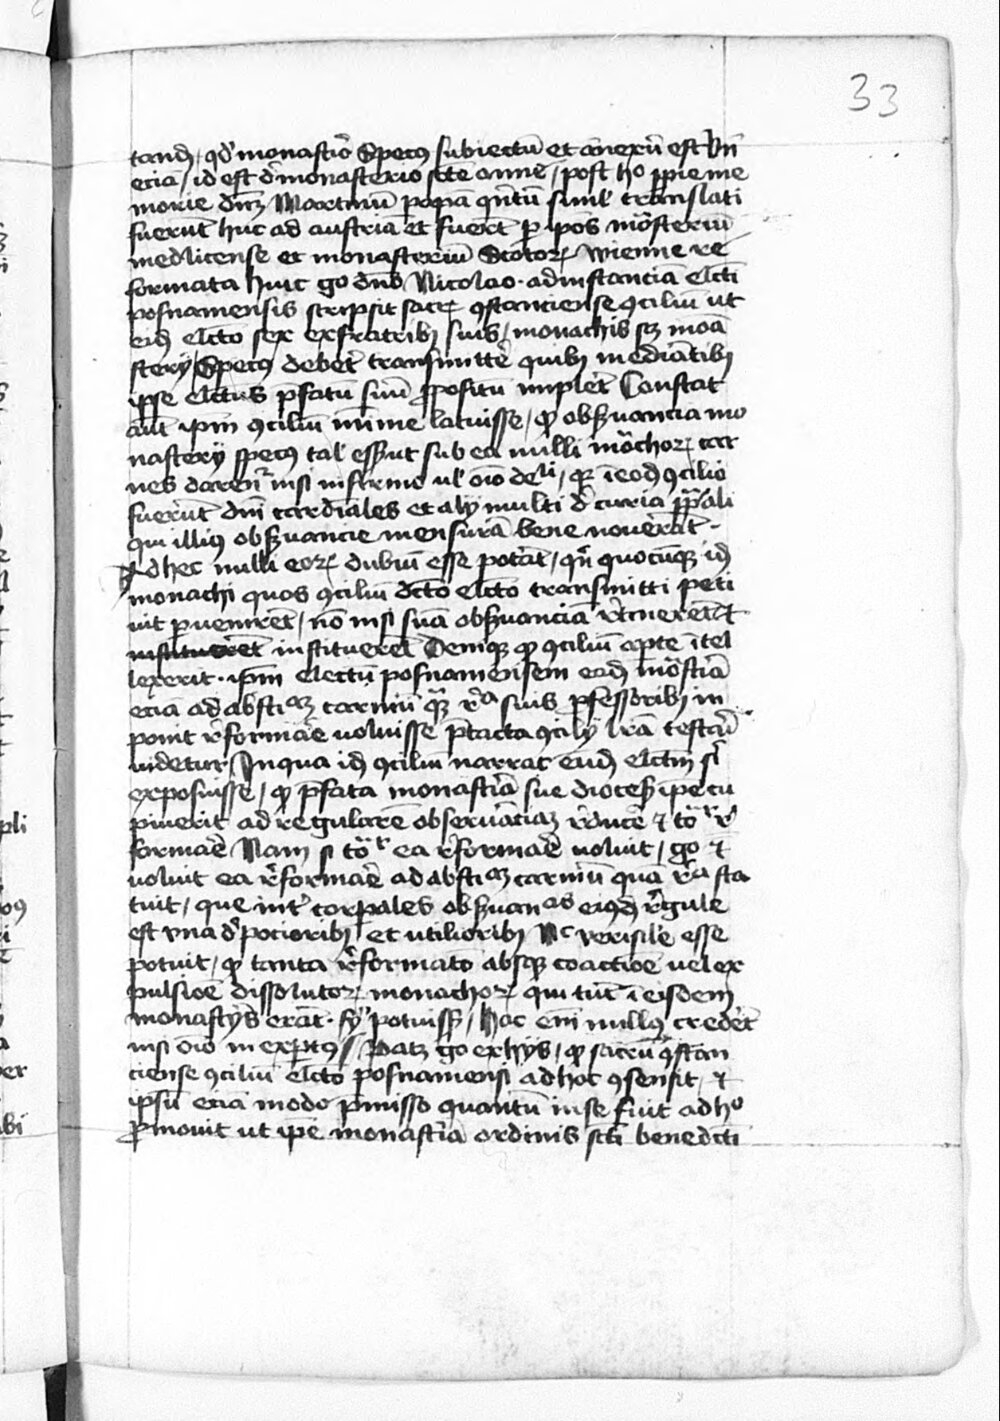 33
tand, qd' monastio Specus subiectu et anexu est Vn
ecia, id est d' monasterio scte anne, post ho pie me
morie dnm Martinu papa quintu simul translati
fuerut huc ad austria et fuert p ipos moasteriu
medlicense et monasteriu Scotor wienne re
formata huic go dno Nicolao ad instancia elcti
posnamensis scripsit sacr 9stanciense 9ciliu ut
eid elcto sex ex fratrib suis, monachis sz moa
stery Specus debet transmitte quib mediatib
ipse elctus pfatu suu propositu implet Constat
aut ipm 9ciliu mime latuisse, qd obseruancia mo
nastery specus tal' esset ut sub ea nulli moachor car
nes darent nisi infirmis ul' oio deli, qr i eod 9cilio
fuerut dni cardinales et aly multi d' curia papali
qui illius obseruancie mensura bene nouerat
Adhec nulli eor dubiu esse potat, qn quocunq id
monachi quos 9ciliu dcto elcto transmitti peti
uit peruenirent, no nisi sua obseruancia retinerent et
instituerent instituerent Deniq qd 9ciliu apte itel
lexerit ipm electu posnamensem eid moastia
ecia ad abstiam carniu qua ra suis pfessorib in
ponit reformare uoluisse ptacta 9cily lra testari
uidetur In qua id 9ciliu narrat eud elctm si
exposuisse, qd pfata monastia sue dioces ipe cu
piuerit ad regulare obseruaciam reducere et tor re
formare Nam si tor ea reformare uoluit, go et
uoluit ea reformare ad abstiam carniu qua ra sta
tuit, que int corpales obseruancias eiusd regule
est vna d' pocioribus et utiliorib Nec verisile esse
potuit, qd tanta reformato absq coactioe uel ex
pulsioe dissolutor monachor qui tut i eisdem
monastys erat fy potuisset, hac em nullus credet
nisi oio inexptus Patz go ex hys, qd sacru 9stan
ciense 9ciliu elcto posnamensi ad hoc 9sensit, et
ipsu ecia modo pmisso quantu in se fuit ad ho
pmouit ut ipe monastia ordinis scti benedicti